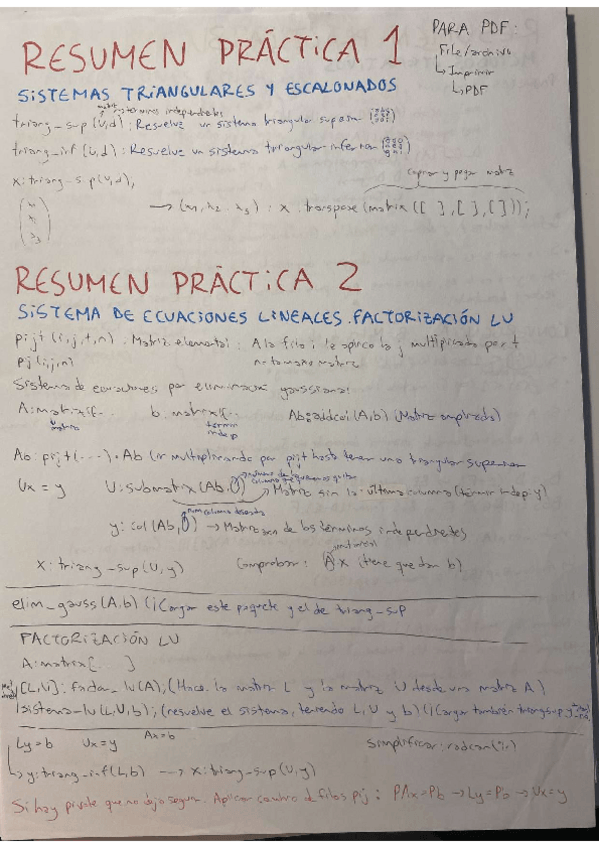 PARA PDF:
File/archivo
↳ Imprimir
↳ PDF
RESUMEN PRÁCTICA 1
SISTEMAS TRIANGULARES Y ESCALONADOS
matriz términos independientes
triang_sup (U,d): Resuelve un sistema triangular superior
triang_inf (U,d): Resuelve un sistema triangular inferior
x: triang_sup(U,d);
copiar y pegar matriz
→ (x1, x2, x3) : x . transpose(matrix([ ],[ ],[ ]));
RESUMEN PRÁCTICA 2
SISTEMA DE ECUACIONES LINEALES. FACTORIZACIÓN LU
pijt (i,j,t,n) . Matriz elemental: A la fila i le aplico la j multiplicada por t
pij (i,j,n) n: tamaño matriz
Sistema de ecuaciones por eliminación gaussiana:
A: matrix([... b: matrix([... Ab: addcol(A,b) (Matriz ampliada)
matriz términ indep
Ab: pijt(...) . Ab (ir multiplicando por pijt hasta tener una triangular superior
Ux = y U: submatrix(Ab, ) → Matriz sin la última columna (términ indep. y)
y: col(Ab, ) → Matriz de los términos independientes
x: triang_sup(U,y) Comprobar: A.x (tiene que dar b)
elim_gauss(A,b) (¡Cargar este paquete y el de triang_sup
FACTORIZACIÓN LU
A: matrix[... ]
[L,U]: factor_lu(A); (Hace la matriz L y la matriz U desde una matriz A)
sistema_lu(L,U,b); (resuelve el sistema, teniendo L, U y b) (¡Cargar también triang sup y
Ly=b Ux=y Ax=b Simplificar: radcan(%)
↳ y: triang_inf(L,b) → x: triang_sup(U,y)
Si hay pivote que no dejo seguir. Aplicar cambio de filas pij: PAx=Pb → Ly=Pb → Ux=y